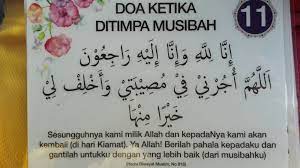 DOA KETIKA
DITIMPA MUSIBAH
11
إِنَّا لِلَّهِ وَإِنَّا إِلَيْهِ رَاجِعُوْنَ
اَللَّهُمَّ أْجُرْنِيْ فِيْ مُصِيْبَتِيْ وَأَخْلِفْ لِيْ
خَيْرًا مِنْهَا
Sesungguhnya kami milik Allah dan kepadaNya kami akan
kembali (di hari Kiamat). Ya Allah! Berilah pahala kepadaku dan
gantilah untukku dengan yang lebih baik (dari musibahku)
(Hadis Riwayat Muslim, No 918)